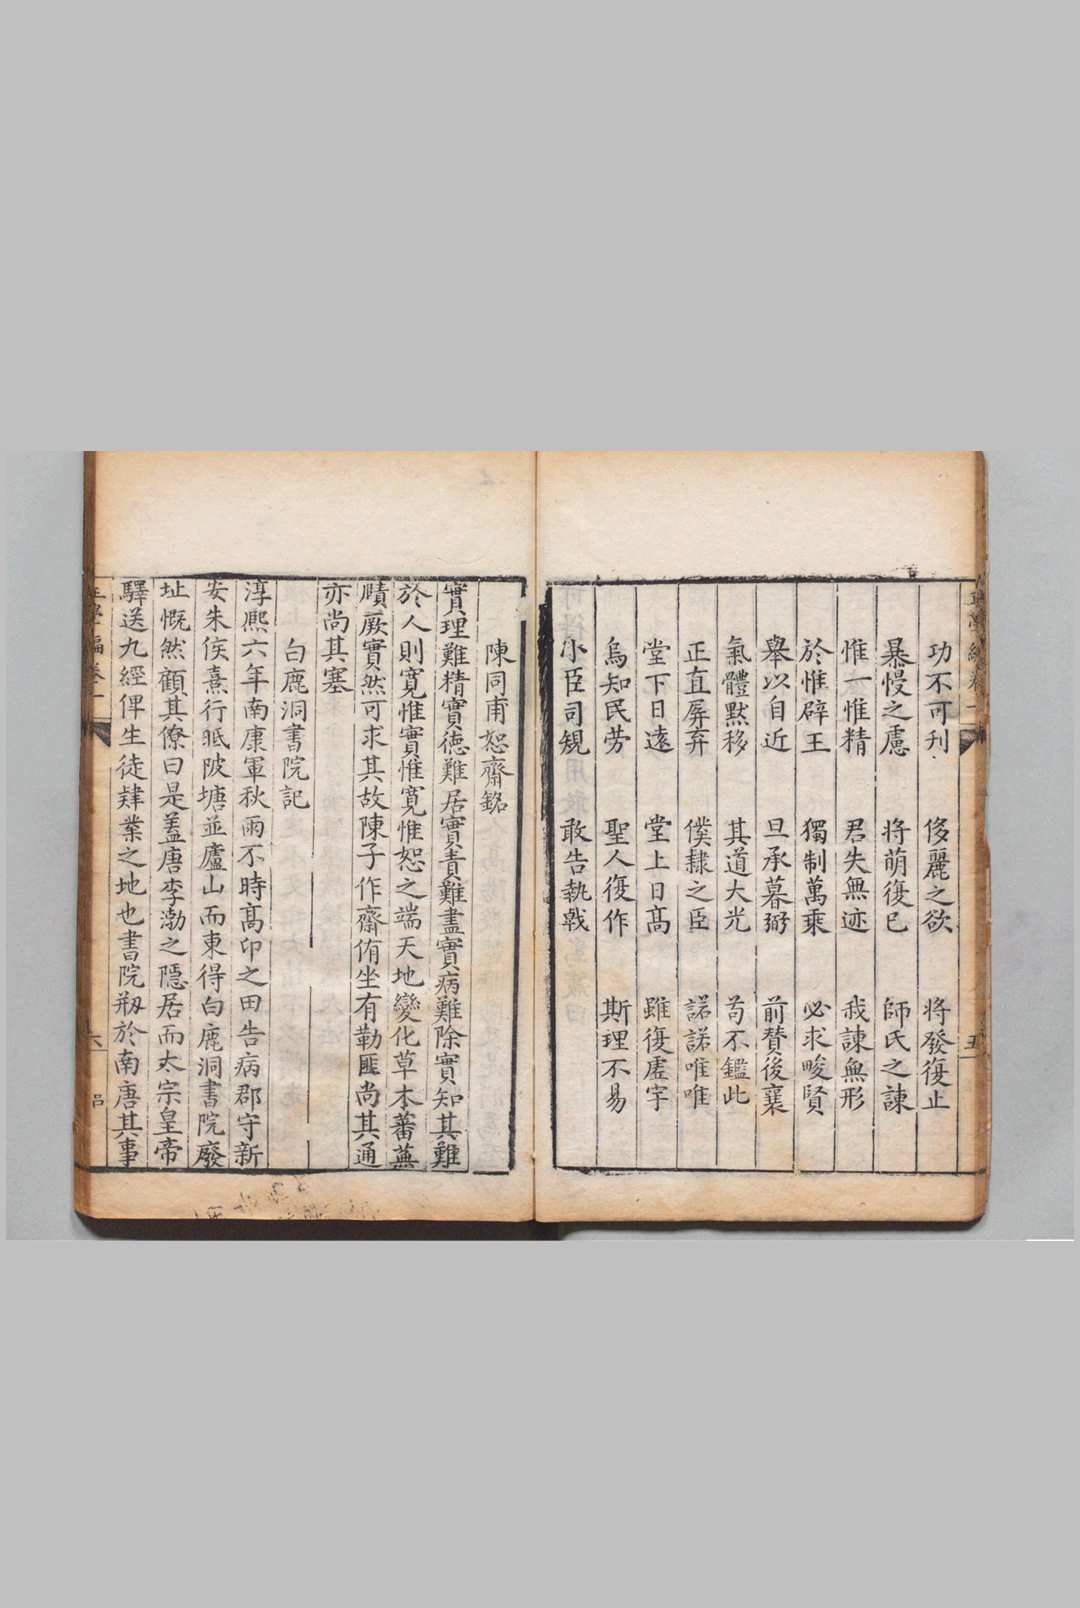 功不可刋 侈麗之欲 將發復止
暴慢之慮 將萌復已 師氏之諫
惟一惟精 君失無迹 我諫無形
於惟辟王 獨制萬乘 必求畯賢
舉以自近 旦承暮弼 前賛後襄
氣體黙移 其道大光 苟不鑑此
正直屏弃 僕隸之臣 諾諾唯唯
堂下日逺 堂上日髙 雖復虚宇
烏知民劳 聖人復作 斯理不易
小臣司䂓 敢告執戟
陳同甫恕齋銘
實理難精實德難居實責難盡實病難除實知其難
於人則寛惟實惟寛惟恕之端天地變化草木蕃蕪
賾厥實然可求其故陳子作齋侑坐有勒匪尚其通
亦尚其塞
白鹿洞書院記
淳熙六年南康軍秋雨不時髙卬之田告病郡守新
安朱侯熹行眡陂塘並廬山而東得白鹿洞書院廢
址慨然顧其僚曰是葢唐李渤之隱居而太宗皇帝
驛送九經俾生徒肄業之地也書院刱於南唐其事